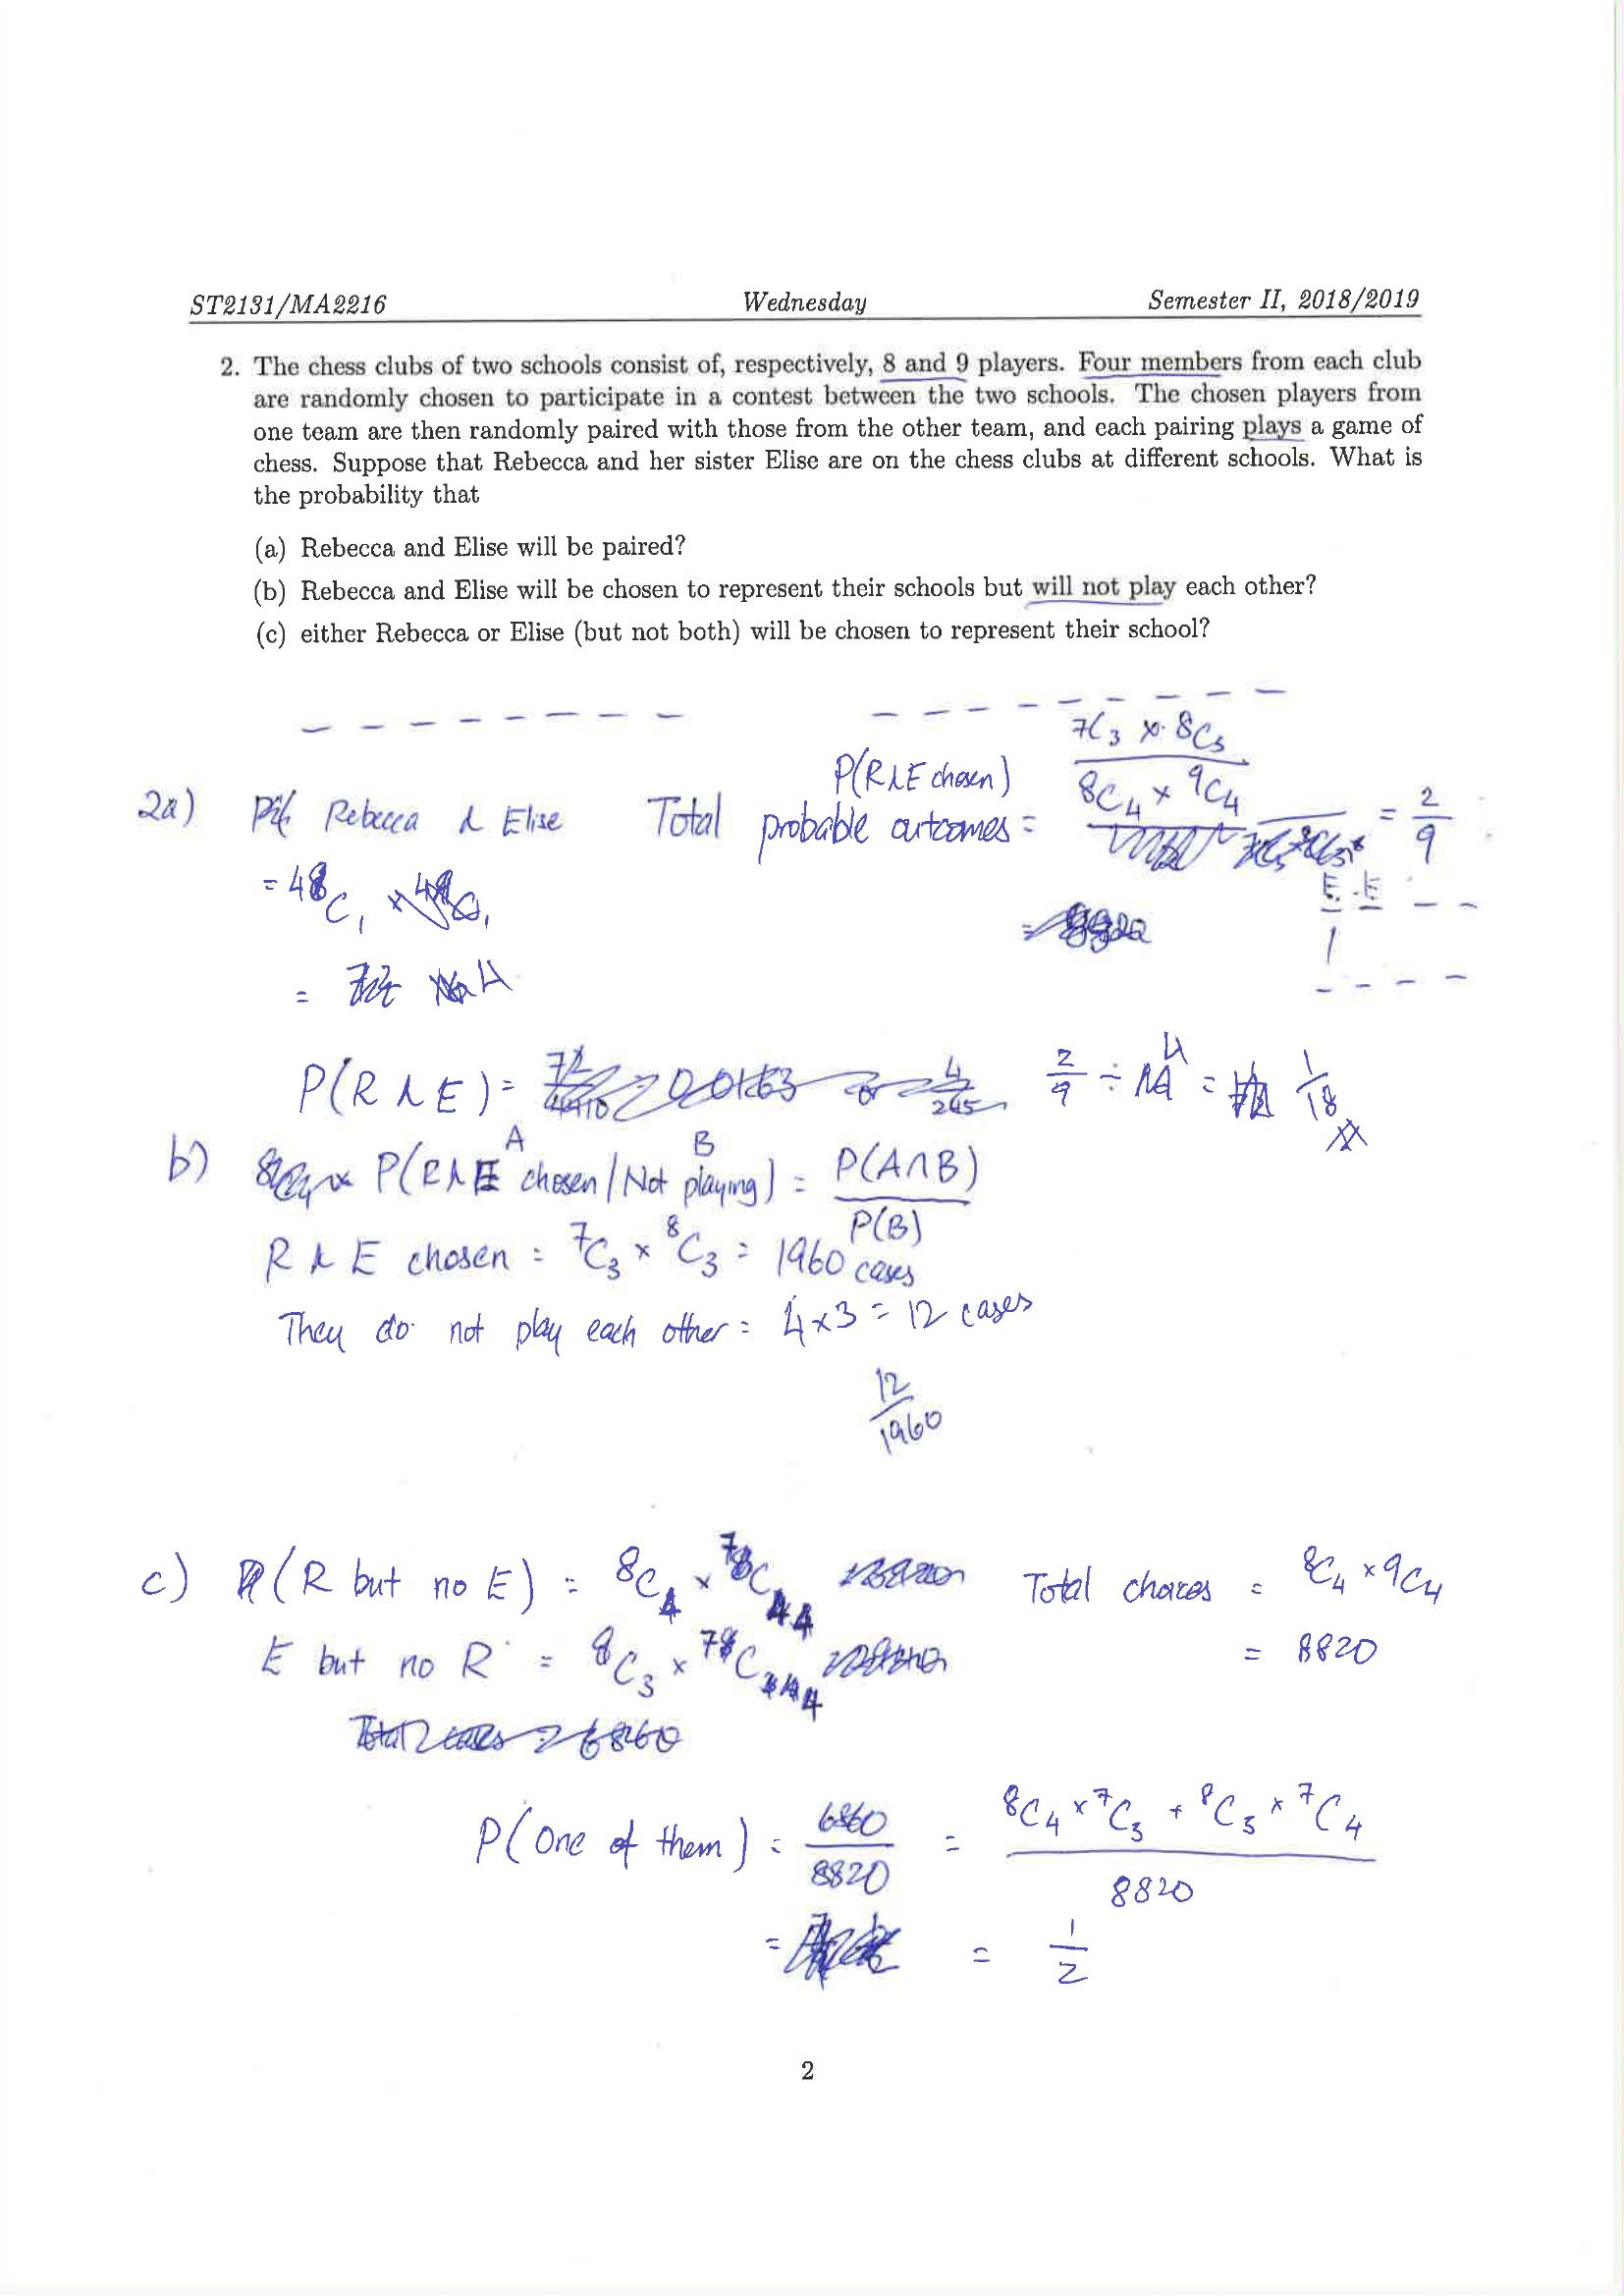 ST2131/MA2216 Wednesday Semester II, 2018/2019
2. The chess clubs of two schools consist of, respectively, 8 and 9 players. Four members from each club
are randomly chosen to participate in a contest between the two schools. The chosen players from
one team are then randomly paired with those from the other team, and each pairing plays a game of
chess. Suppose that Rebecca and her sister Elise are on the chess clubs at different schools. What is
the probability that
(a) Rebecca and Elise will be paired?
(b) Rebecca and Elise will be chosen to represent their schools but will not play each other?
(c) either Rebecca or Elise (but not both) will be chosen to represent their school?
7C3 × 8C3
P(R & E chosen)
8C4 × 9C4
2a) Rebecca & Elise Total probable outcomes = = 2/9
E E
P(R & E) = 2/9 ÷ 4 = 1/18
b) P(R & E chosen / Not playing) = P(A∩B)
A B
P(B)
R & E chosen = 7C3 × 8C3 = 1960 cases
They do not play each other = 4×3 = 12 cases
12
1960
c) (R but no E) = 8C4 × 7C Total choices = 8C4 × 9C4
E but no R = 8C3 × 7C4 = 8820
Total cases = 6860
P(one of them) = 6860/8820 = 8C4 × 7C3 + 8C3 × 7C4
8820
= 1/2
2